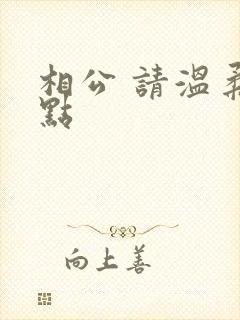 相公 請溫柔
點
向上善